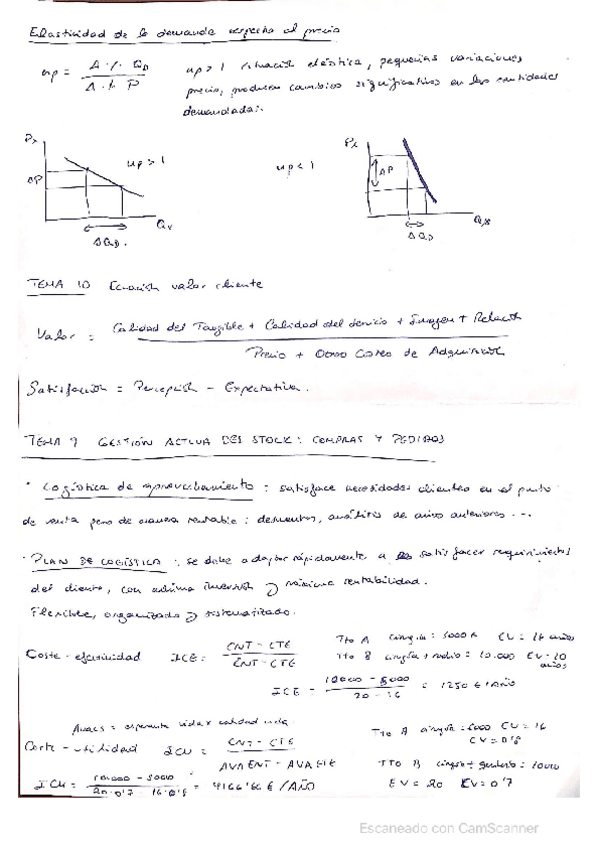 Elasticidad de la demanda respecto al precio
np = Δ % QD / Δ % P
np > 1 situación elástica, pequeñas variaciones
precio, producen cambios significativos en las cantidades
demandadas.
Px
np > 1
ΔP
Qx
ΔQD.
np < 1
Px
ΔP
ΔQD
TEMA 10 Ecuación valor cliente
Valor = Calidad del Tangible + Calidad del servicio + Imagen + Relación / Precio + Otros Costes de Adquisición
Satisfacción = Percepción - Expectativa.
TEMA 9 GESTIÓN ACTIVA DEL STOCK: COMPRAS Y PEDIDOS
· Logística de aprovechamiento: satisface necesidades clientes en el punto
de venta pero de manera rentable: descuentos, análisis de años anteriores...
· PLAN DE LOGÍSTICA: se debe adaptar rápidamente a satisfacer requerimientos
del cliente, con mínima inversión y máxima rentabilidad.
Flexible, organizado y sistematizado.
Coste-efectividad ICE = CNT - CTE / ENT - CTE
Tto A cirugía: 5000 € EV = 16 años
Tto B cirugía + radio = 10.000 EV = 20 años
ICE = 10000 - 5000 / 20 - 16 = 1250 €/AÑO
AVACs = esperanza vida x calidad vida
Coste-utilidad ICU = CNT - CTE / AVAENT - AVAETE
Tto A cirugía = 5000 EV = 16
CV = 0'8
Tto B cirugía + 10000
EV = 20 CV = 0'7
ICU = 10000 - 5000 / 20·0'7 - 16·0'8 = 4166'66 €/AÑO
Escaneado con CamScanner